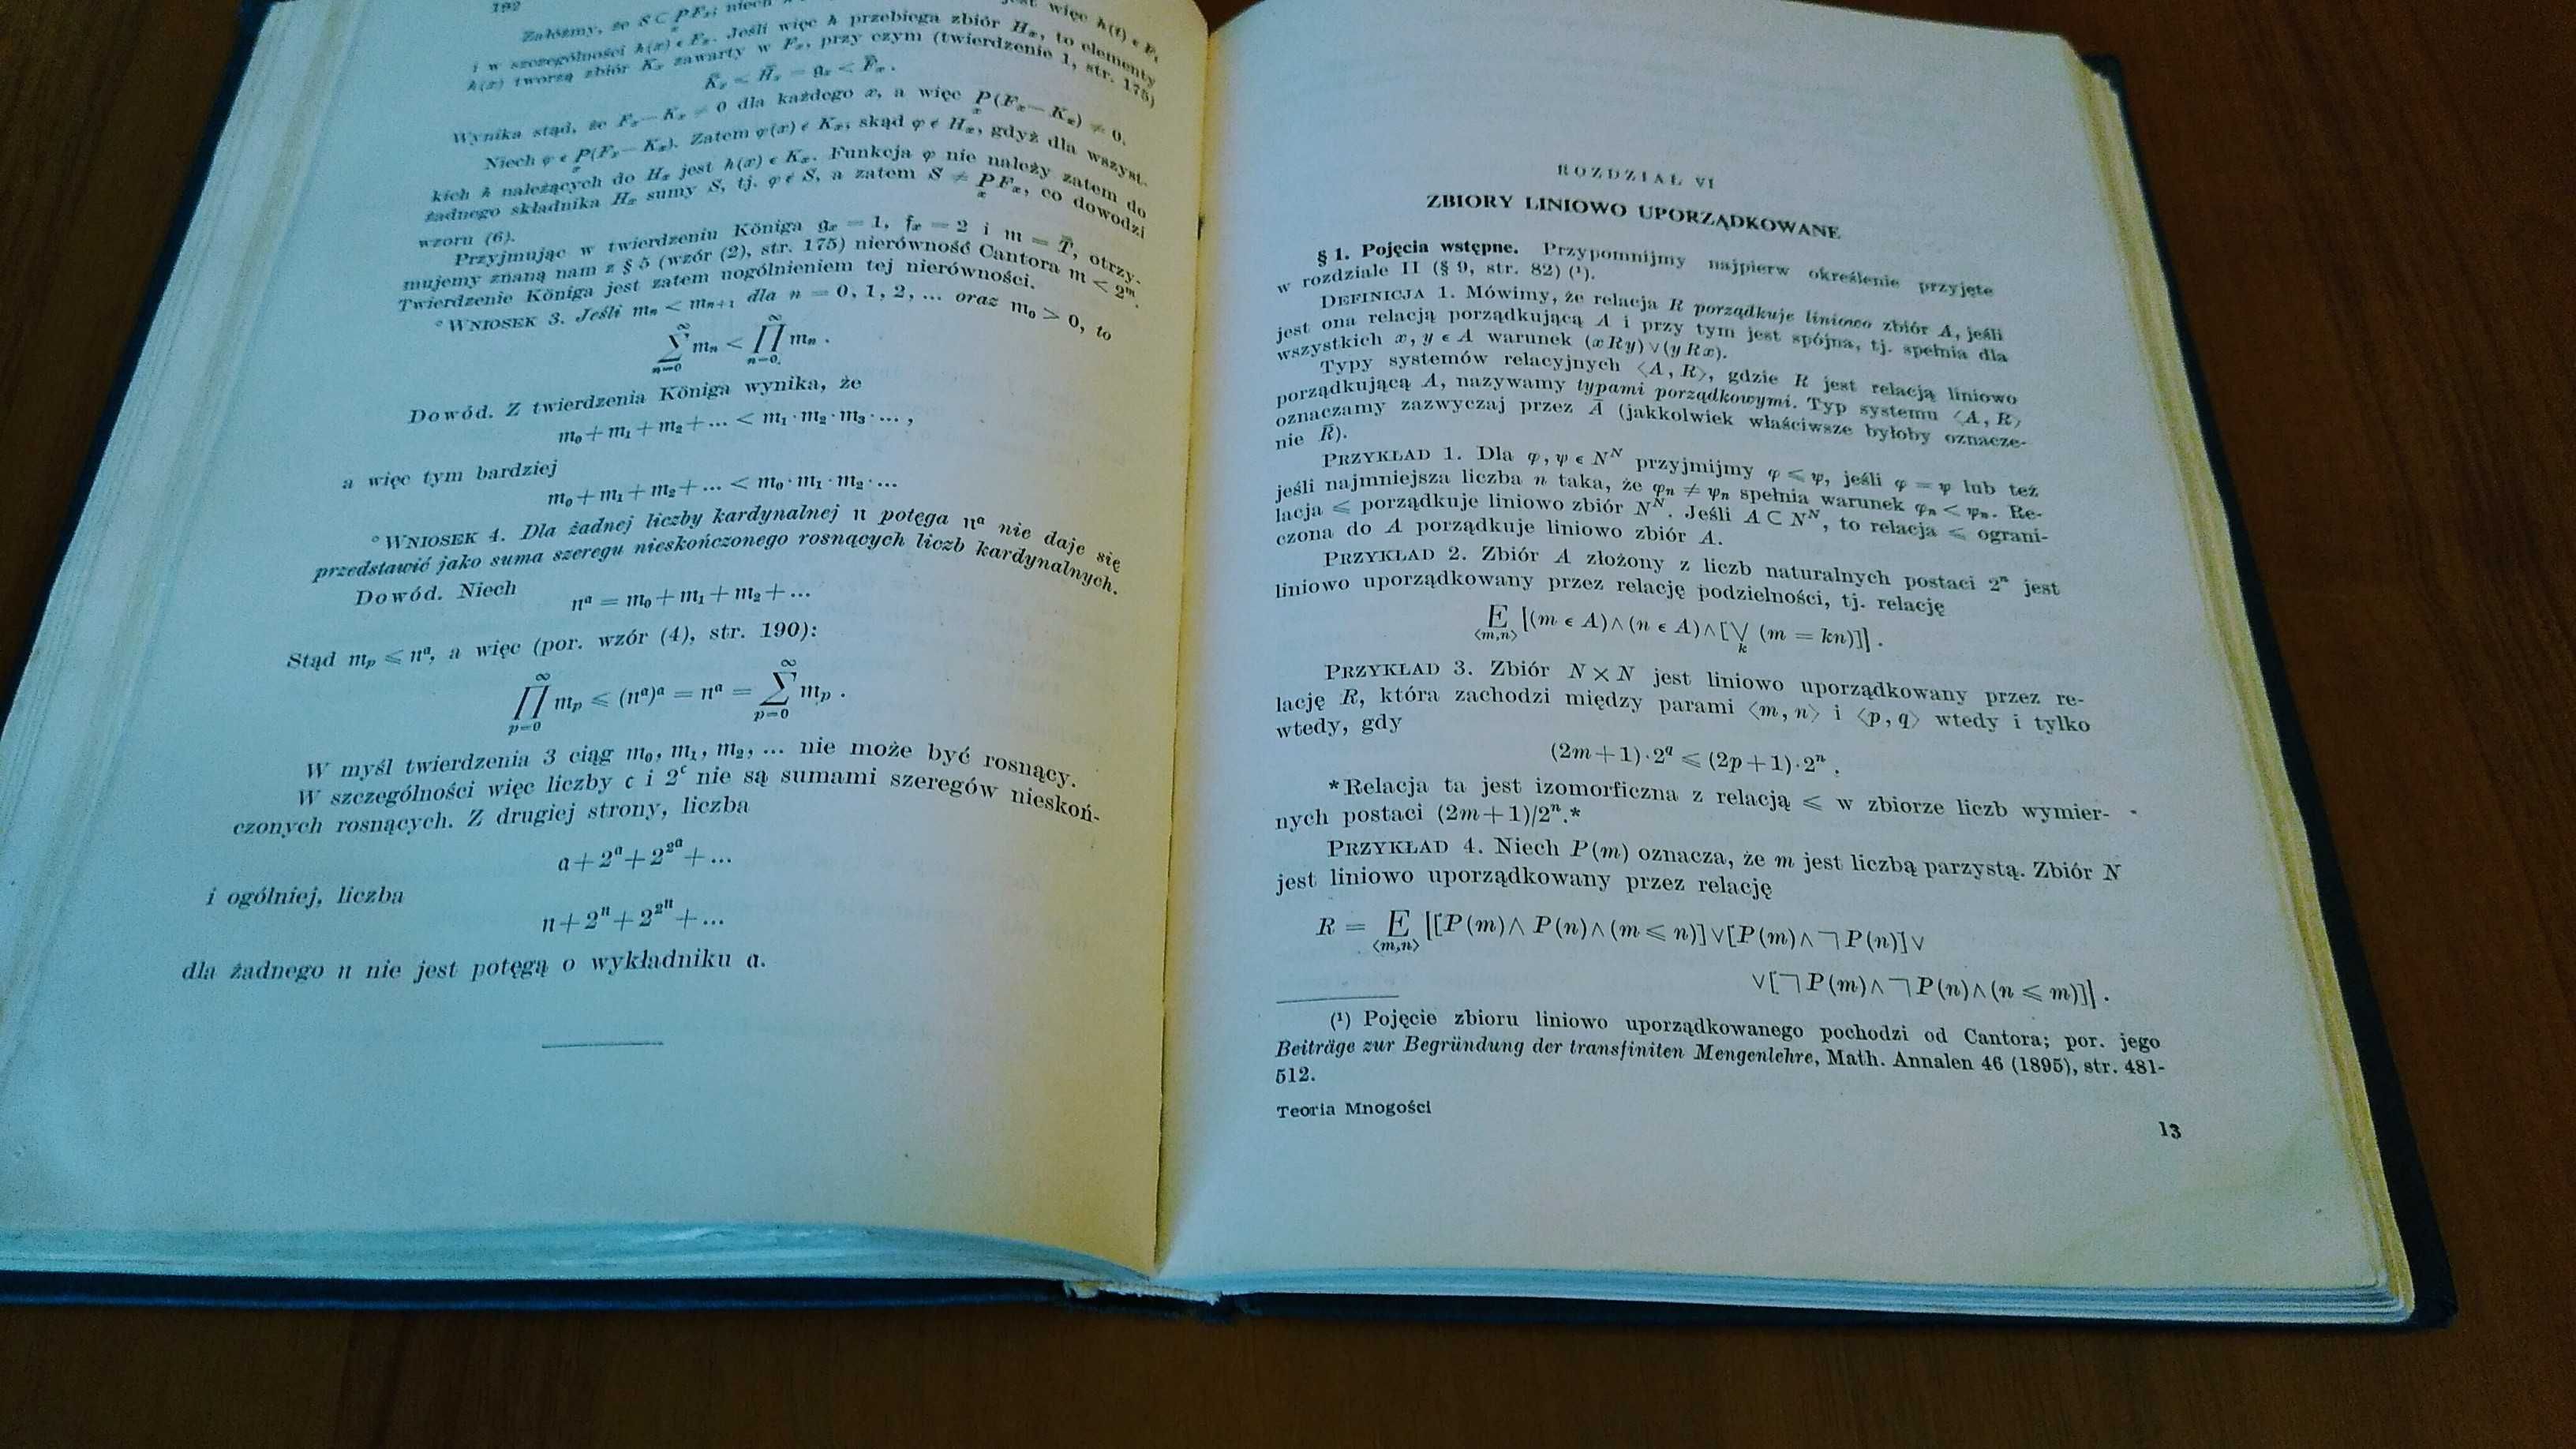 192
Załóżmy, że S ⊂ P Fₓ; niech
jest więc h(t) ϵ Fₜ
i w szczególności h(x) ϵ Fₓ. Jeśli więc h przebiega zbiór Hₓ, to elementy
h(x) tworzą zbiór Kₓ zawarty w Fₓ, przy czym (twierdzenie 1, str. 175)
K̿ₓ ⩽ H̿ₓ = 𝔤ₓ < F̿ₓ.
Wynika stąd, że Fₓ — Kₓ ≠ 0 dla każdego x, a więc P(Fₓ — Kₓ) ≠ 0.
x
Niech φ ϵ P(Fₓ — Kₓ). Zatem φ(x) ϵ̸ Kₓ, skąd φ ϵ̸ Hₓ, gdyż dla wszyst-
x
kich h należących do Hₓ jest h(x) ϵ Kₓ. Funkcja φ nie należy zatem do
żadnego składnika Hₓ sumy S, tj. φ ϵ̸ S, a zatem S ≠ P Fₓ, co dowodzi
x
wzoru (6).
Przyjmując w twierdzeniu Königa 𝔤ₓ = 1, 𝔣ₓ = 2 i 𝔪 = T̿, otrzy-
mujemy znaną nam z § 5 (wzór (2), str. 175) nierówność Cantora 𝔪 < 2^𝔪.
Twierdzenie Königa jest zatem uogólnieniem tej nierówności.
°WNIOSEK 3. Jeśli 𝔪ₙ < 𝔪ₙ₊₁ dla n = 0, 1, 2, ... oraz 𝔪₀ > 0, to
∞ ∞
∑ 𝔪ₙ < ∏ 𝔪ₙ .
n=0 n=0
Dowód. Z twierdzenia Königa wynika, że
𝔪₀ + 𝔪₁ + 𝔪₂ + ... < 𝔪₁ · 𝔪₂ · 𝔪₃ · ... ,
a więc tym bardziej
𝔪₀ + 𝔪₁ + 𝔪₂ + ... < 𝔪₀ · 𝔪₁ · 𝔪₂ · ...
°WNIOSEK 4. Dla żadnej liczby kardynalnej 𝔫 potęga 𝔫^𝔞 nie daje się
przedstawić jako suma szeregu nieskończonego rosnących liczb kardynalnych.
Dowód. Niech
𝔫^𝔞 = 𝔪₀ + 𝔪₁ + 𝔪₂ + ...
Stąd 𝔪ₚ ⩽ 𝔫^𝔞, a więc (por. wzór (4), str. 190):
∞ ∞
∏ 𝔪ₚ ⩽ (𝔫^𝔞)^𝔞 = 𝔫^𝔞 = ∑ 𝔪ₚ .
p=0 p=0
W myśl twierdzenia 3 ciąg 𝔪₀, 𝔪₁, 𝔪₂, ... nie może być rosnący.
W szczególności więc liczby 𝔠 i 2^𝔠 nie są sumami szeregów nieskoń-
czonych rosnących. Z drugiej strony, liczba
𝔞 + 2^𝔞 + 2^2^𝔞 + ...
i ogólniej, liczba
𝔫 + 2^𝔫 + 2^2^𝔫 + ...
dla żadnego 𝔫 nie jest potęgą o wykładniku 𝔞.
ROZDZIAŁ VI
ZBIORY LINIOWO UPORZĄDKOWANE
§ 1. Pojęcia wstępne. Przypomnijmy najpierw określenie przyjęte
w rozdziale II (§ 9, str. 82) (¹).
DEFINICJA 1. Mówimy, że relacja R porządkuje liniowo zbiór A, jeśli
jest ona relacją porządkującą A i przy tym jest spójna, tj. spełnia dla
wszystkich x, y ϵ A warunek (xRy) ∨ (yRx).
Typy systemów relacyjnych ⟨A, R⟩, gdzie R jest relacją liniowo
porządkującą A, nazywamy typami porządkowymi. Typ systemu ⟨A, R⟩
oznaczamy zazwyczaj przez A̅ (jakkolwiek właściwsze byłoby oznacze-
nie R̅).
PRZYKŁAD 1. Dla φ, ψ ϵ Nᴺ przyjmijmy φ ⩽ ψ, jeśli φ = ψ lub też
jeśli najmniejsza liczba n taka, że φₙ ≠ ψₙ spełnia warunek φₙ < ψₙ. Re-
lacja ⩽ porządkuje liniowo zbiór Nᴺ. Jeśli A ⊂ Nᴺ, to relacja ⩽ ograni-
czona do A porządkuje liniowo zbiór A.
PRZYKŁAD 2. Zbiór A złożony z liczb naturalnych postaci 2ⁿ jest
liniowo uporządkowany przez relację podzielności, tj. relację
E [(m ϵ A) ∧ (n ϵ A) ∧ [⋁ (m = kn)]] .
⟨m,n⟩ k
PRZYKŁAD 3. Zbiór N × N jest liniowo uporządkowany przez re-
lację R, która zachodzi między parami ⟨m, n⟩ i ⟨p, q⟩ wtedy i tylko
wtedy, gdy
(2m + 1) · 2^q ⩽ (2p + 1) · 2ⁿ .
*Relacja ta jest izomorficzna z relacją ⩽ w zbiorze liczb wymier-
nych postaci (2m + 1)/2ⁿ.*
PRZYKŁAD 4. Niech P(m) oznacza, że m jest liczbą parzystą. Zbiór N
jest liniowo uporządkowany przez relację
R = E [[P(m) ∧ P(n) ∧ (m ⩽ n)] ∨ [P(m) ∧ ¬P(n)] ∨
⟨m,n⟩
∨ [¬P(m) ∧ ¬P(n) ∧ (n ⩽ m)]] .
(¹) Pojęcie zbioru liniowo uporządkowanego pochodzi od Cantora; por. jego
Beiträge zur Begründung der transfiniten Mengenlehre, Math. Annalen 46 (1895), str. 481-
512.
Teoria Mnogości
13